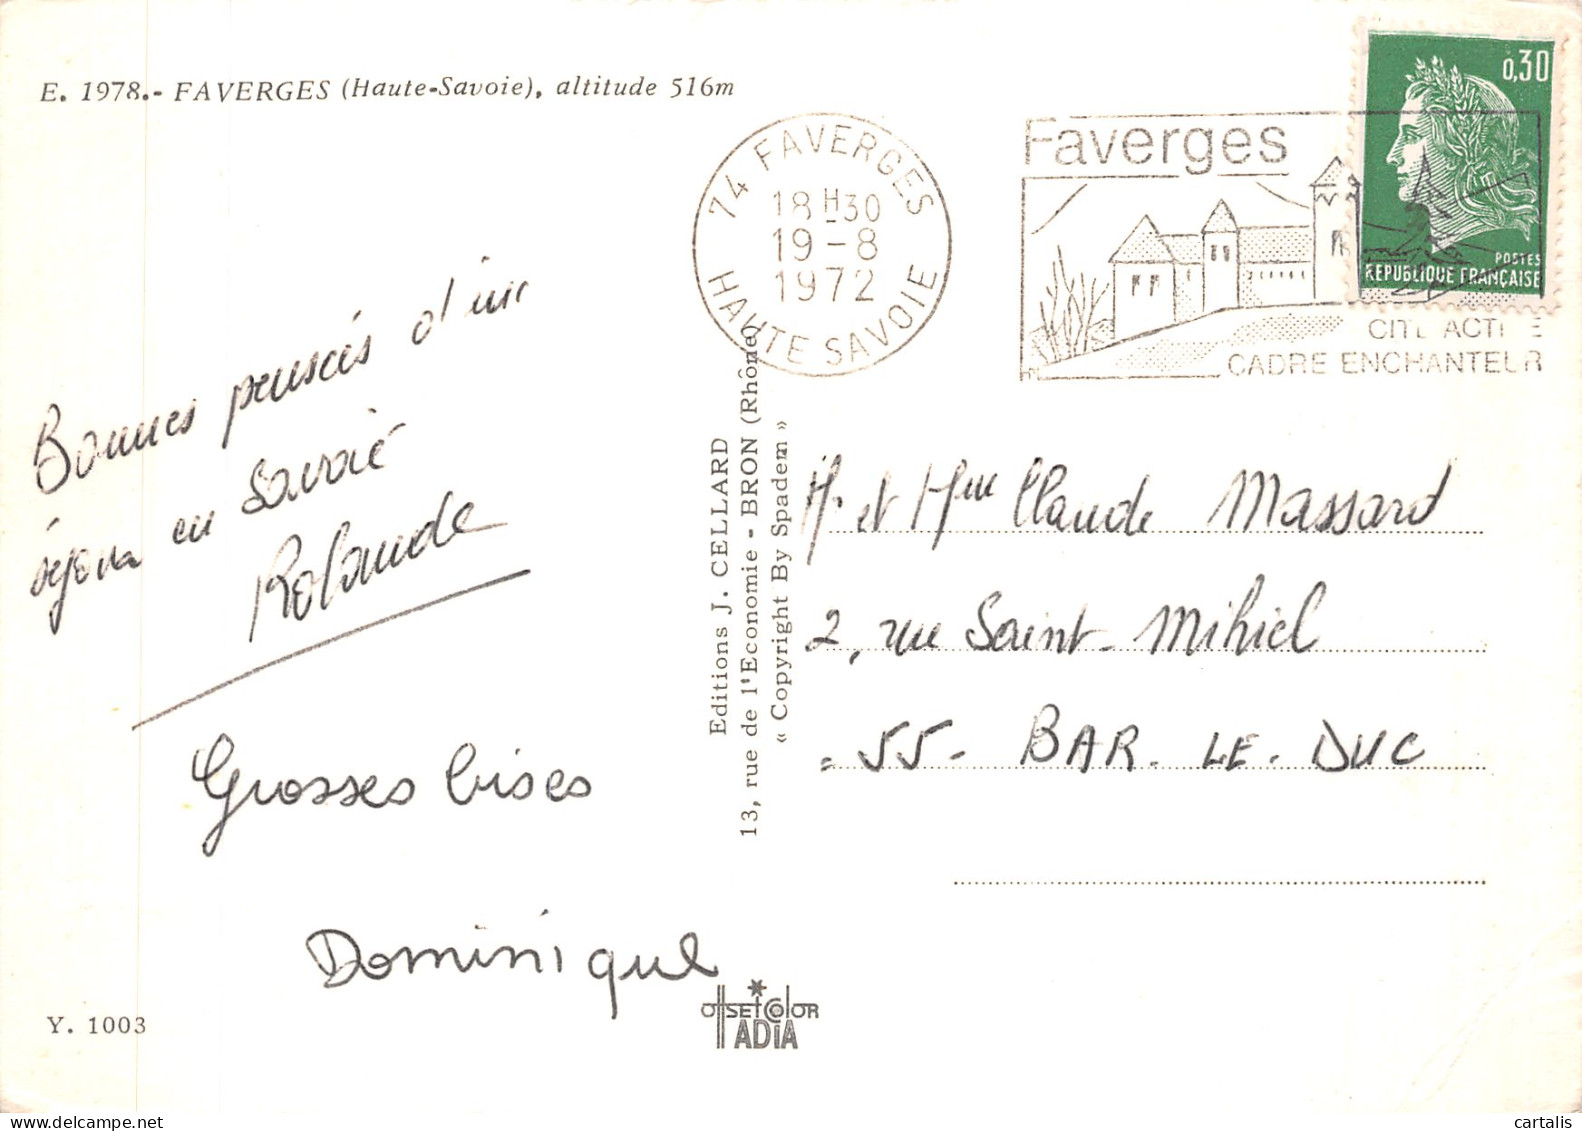 E. 1978.- FAVERGES (Haute-Savoie), altitude 516m
74 FAVERGES
18H30
19-8
1972
HAUTE SAVOIE
Faverges
CITE ACTIVE
CADRE ENCHANTEUR
0,30
POSTES
REPUBLIQUE FRANÇAISE
Bonnes pensées d'un
séjour en Savoie
Rolande
Grosses bises
Dominique
Editions J. CELLARD
13, rue de l'Economie - BRON (Rhône)
« Copyright By Spadem »
M. et Mme Claude Massard
2, rue Saint-Mihiel
55- BAR-LE-DUC
Y. 1003
OffSEtColOR
ADiA
cartalis